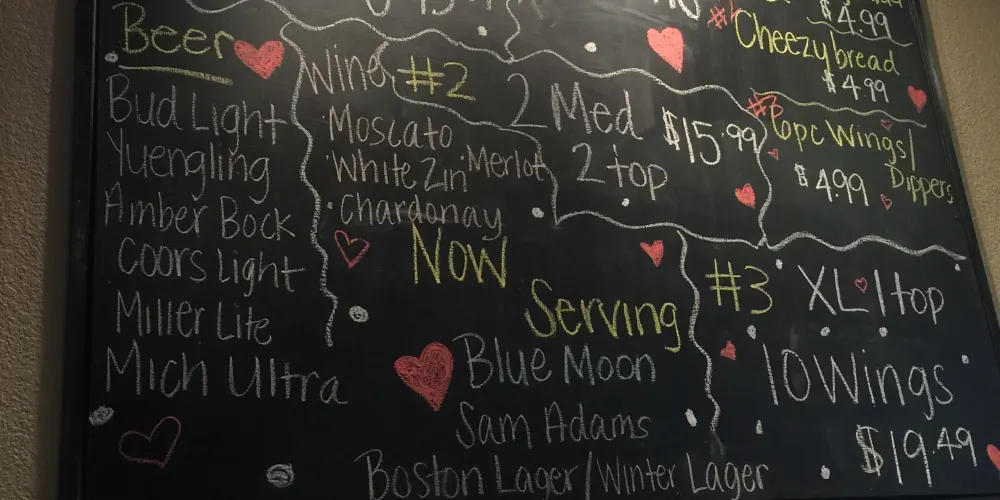 Beer
Bud Light
Yuengling
Amber Bock
Coors Light
Miller Lite
Mich Ultra
Wine
Moscato
White Zin Merlot
Chardonay
#2
2 Med
2 top
$15.99
$4.99
Cheezybread
$4.99
6pc Wings/
Dippers
$4.99
Now
Serving
Blue Moon
Sam Adams
Boston Lager/Winter Lager
#3
XL 1top
10 Wings
$19.49